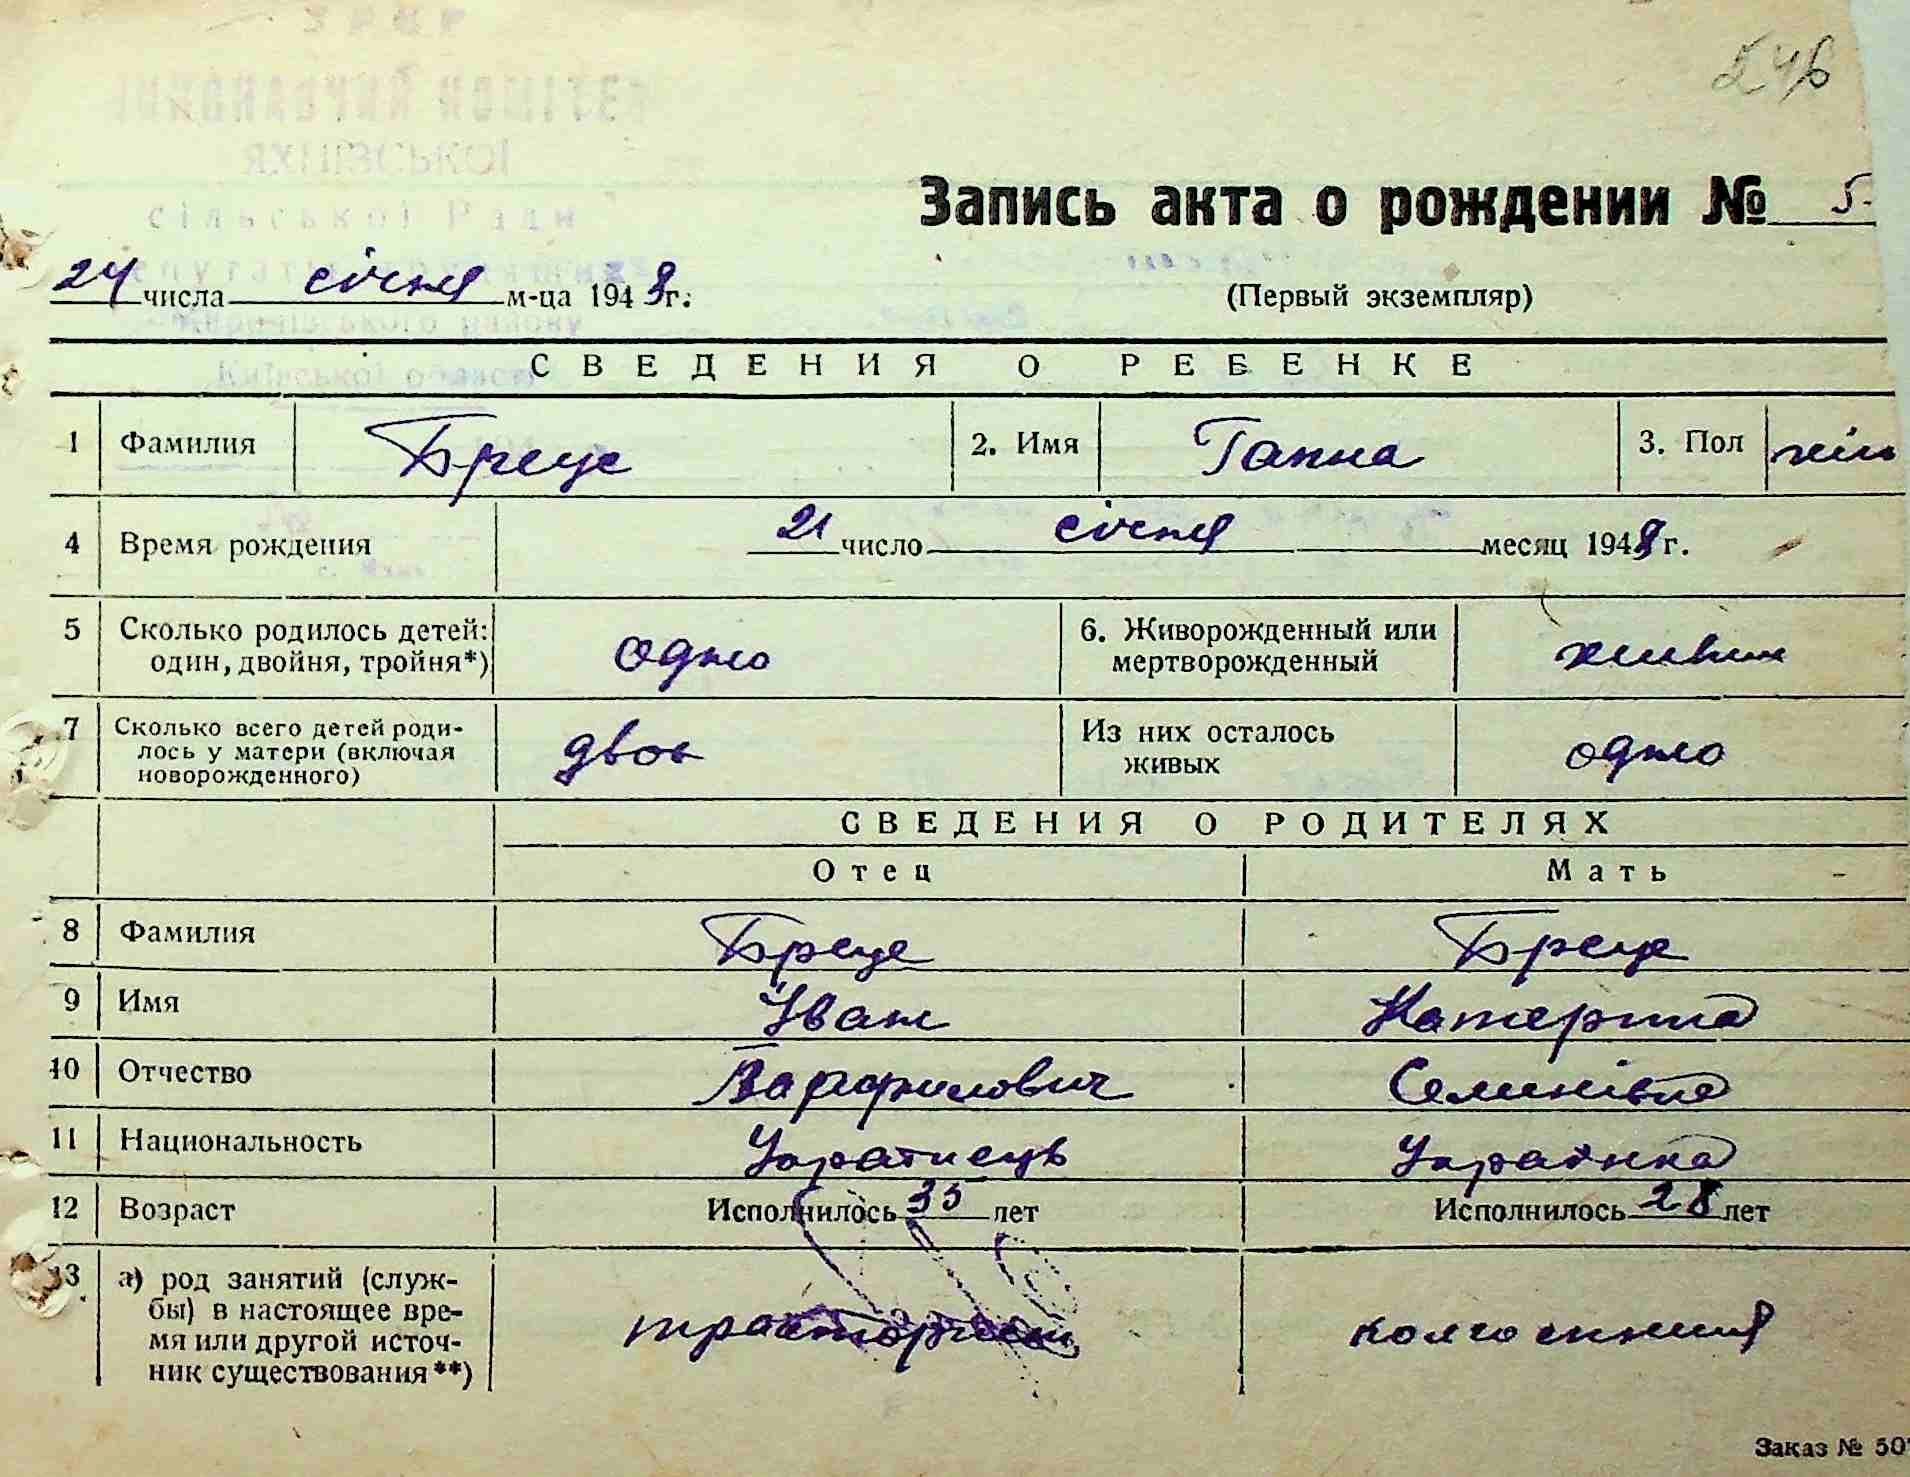 546
Запись акта о рождении № 5
24 числа січня м-ца 1948г.
(Первый экземпляр)
СВЕДЕНИЯ О РЕБЕНКЕ
1 Фамилия Бреус 2. Имя Ганна 3. Пол жін
4 Время рождения 21 число січня месяц 1948г.
5 Сколько родилось детей: один, двойня, тройня*) одно 6. Живорожденный или мертворожденный живим
7 Сколько всего детей родилось у матери (включая новорожденного) двоє Из них осталось живых одно
СВЕДЕНИЯ О РОДИТЕЛЯХ
Отец Мать
8 Фамилия Бреус Бреус
9 Имя Іван Катерина
10 Отчество Варфоилович Семенівна
11 Национальность Українець Українка
12 Возраст Исполнилось 35 лет Исполнилось 28 лет
13 а) род занятий (служ-
бы) в настоящее вре-
мя или другой источ-
ник существования**) тракторист колгоспниця
Заказ № 50